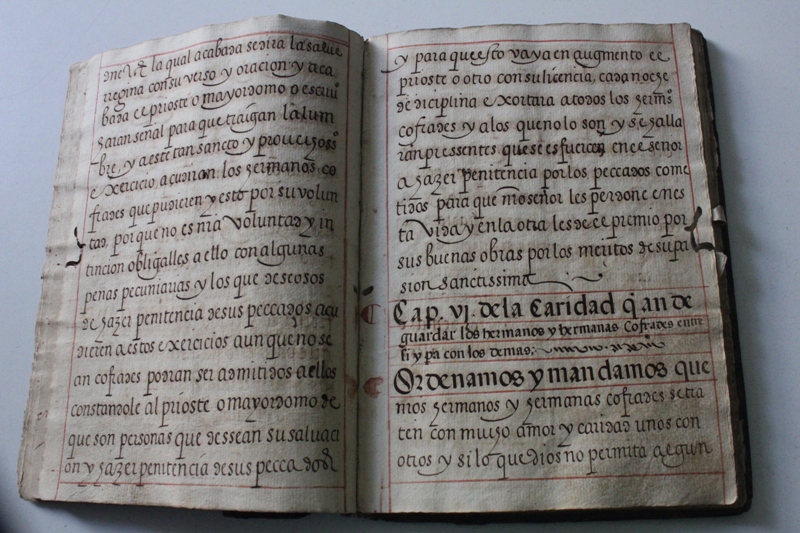 la qual acabada se dira la salue
regina con su verso y oracion y aca
bada el prioste o mayordomo o escriu
haran señal para que traigan la lum
bre, y a este tan sancto y prouechoso
exercicio acudiran los hermanos co
frades que pudieren y esto por su volun
tad, porque no es nra voluntad y in
tincion obligalles a ello con algunas
penas pecuniarias y los que deseosos
de hazer penitencia de sus peccados acu
dieren a estos exercicios aunque no se
an cofrades podran ser admitidos a ellos
constandole al prioste o mayordomo de
que son personas que dessean su saluaci
on y hazer penitencia de sus peccados
y para que esto vaya en augmento el
prioste o otro con su licencia, cada noche
de diciplina exortara a todos los herms
cofrades y a los que no lo son y se halla
ran pressentes que se esfuercen en el señor
a hazer penitencia por los peccados come
tidos para que nro señor les perdone en es
ta vida y en la otra les de el premio por
sus buenas obras por los meritos de su pa
sion sanctissima
Cap. vj. de la Caridad q an de
guardar los hermanos y hermanas Cofrades entre
si y pa con los demas;
Ordenamos y mandamos que
nros hermanos y hermanas cofrades se tra
ten con mucho amor y caridad unos con
otros y si lo que dios no permita algun